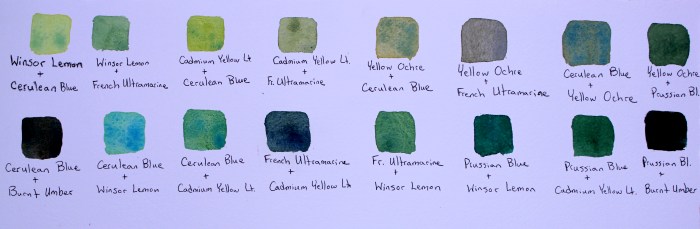 Winsor Lemon
+
Cerulean Blue
Winsor Lemon
+
French Ultramarine
Cadmium Yellow Lt.
+
Cerulean Blue
Cadmium Yellow Lt.
+
Fr. Ultramarine
Yellow Ochre
+
Cerulean Blue
Yellow Ochre
+
French Utramarine
Cerulean Blue
+
Yellow Ochre
Yellow Ochre
+
Prussian Bl.
Cerulean Blue
+
Burnt Umber
Cerulean Blue
+
Winsor Lemon
Cerulean Blue
+
Cadmium Yellow Lt.
French Ultramarine
+
Cadmium Yellow Lt
Fr. Ultramarine
+
Winsor Lemon
Prussian Blue
+
Winsor Lemon
Prussian Blue
+
Cadmium Yellow Lt.
Prussian Bl.
+
Burnt Umber